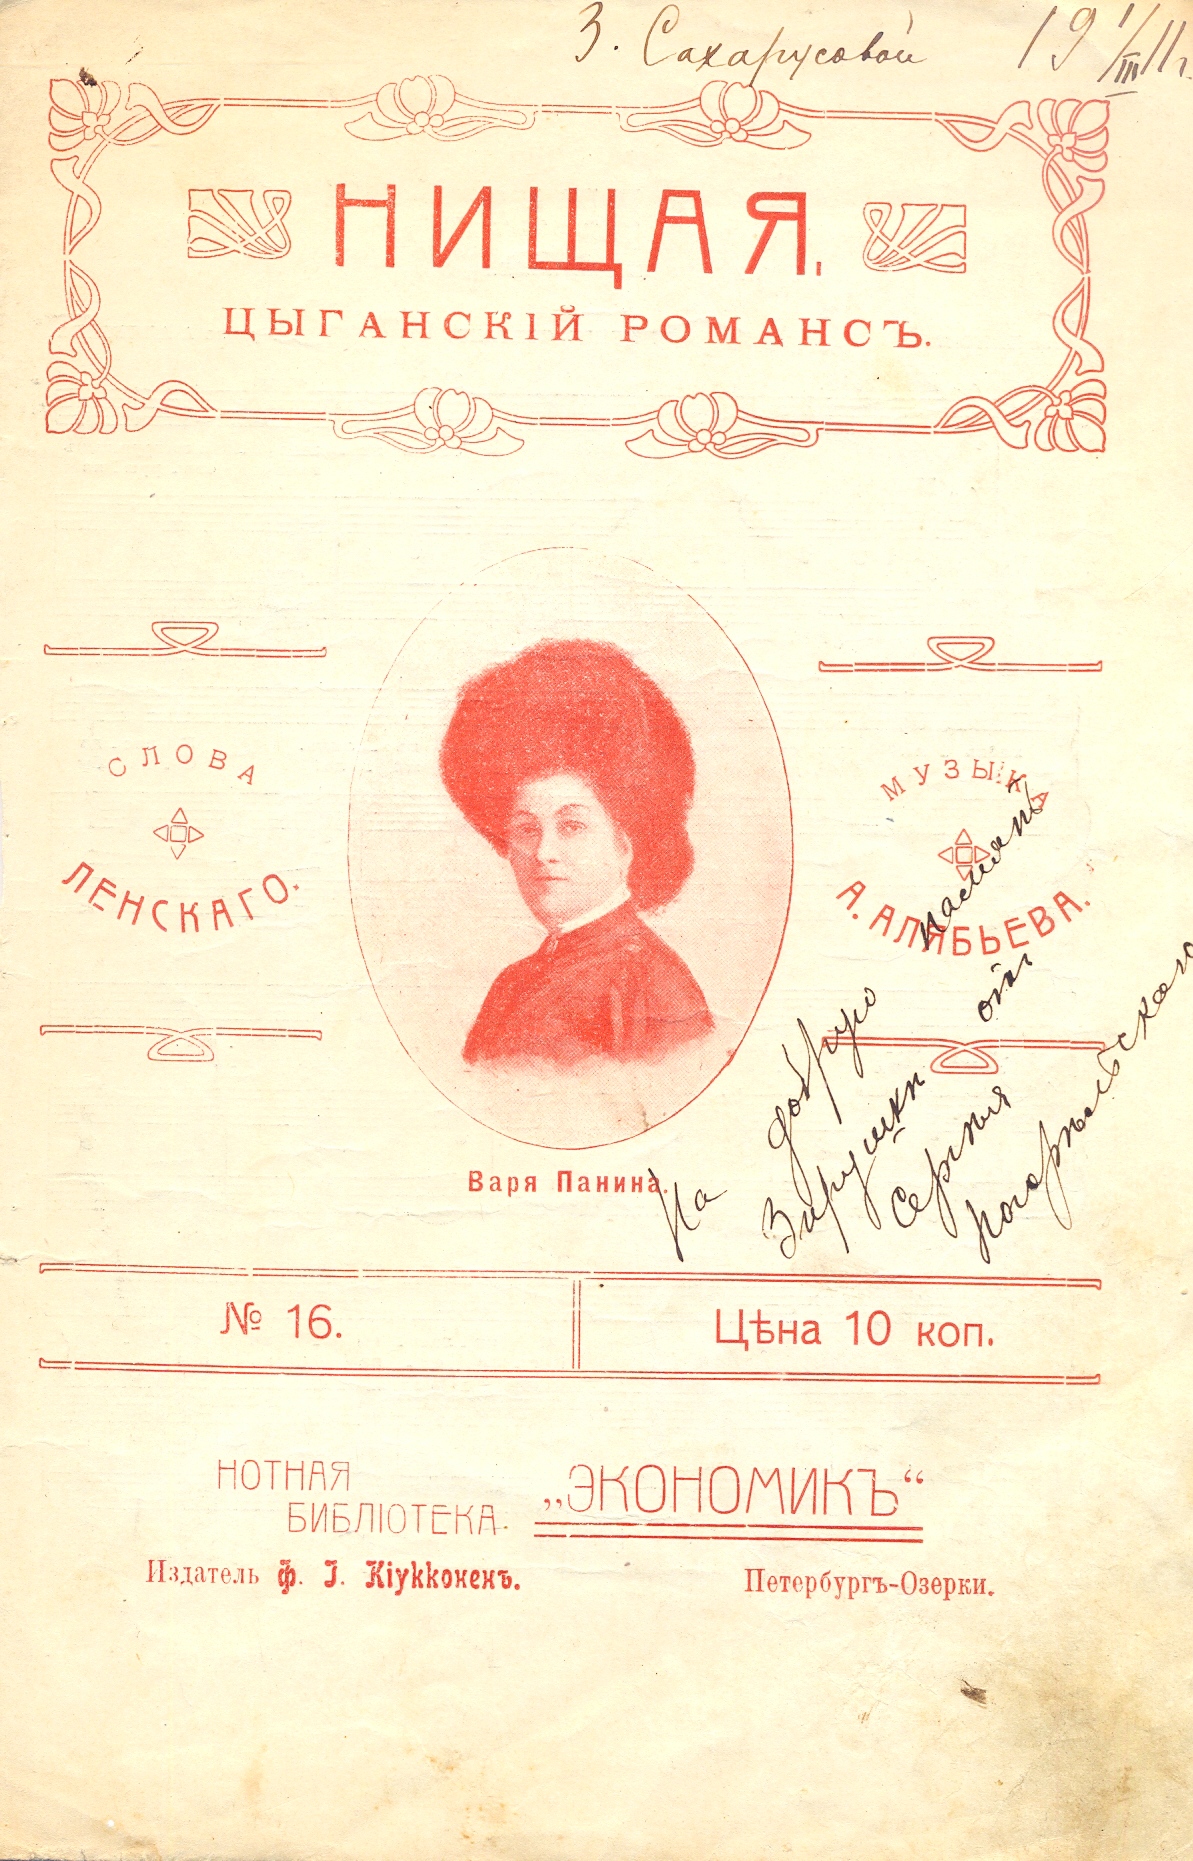 З. Сахарусовой 19 1/III 11 г.
НИЩАЯ.
ЦЫГАНСКІЙ РОМАНСЪ.
СЛОВА
ЛЕНСКАГО.
МУЗЫКА
А. АЛЯБЬЕВА.
Варя Панина.
На добрую память
Зирушки отъ
Сергѣя
Погорѣльскаго
№ 16.
Цѣна 10 коп.
НОТНАЯ
БИБЛІОТЕКА
„ЭКОНОМИКЪ“
Издатель Ф. І. Кіукконенъ.
Петербургъ-Озерки.